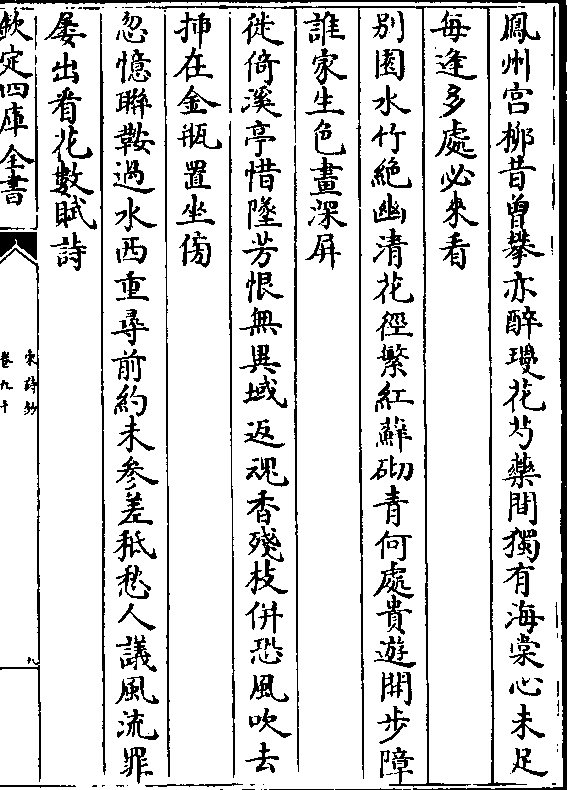 鳳州宫栁昔曽攀亦醉瓊花芍藥間獨有海棠心未足
每逢多處必來看
别園水竹絶幽清花徑繁紅蘚砌青何處貴遊開步障
誰家生色畫深屏
徙倚溪亭惜墜芳恨無異域返魂香殘枝併恐風吹去
挿在金瓶置坐傍
忽憶聯鞍過水西重尋前約未參差秪愁人議風流罪
屢出看花數賦詩
欽定四庫全書
宋詩鈔
卷九十
九